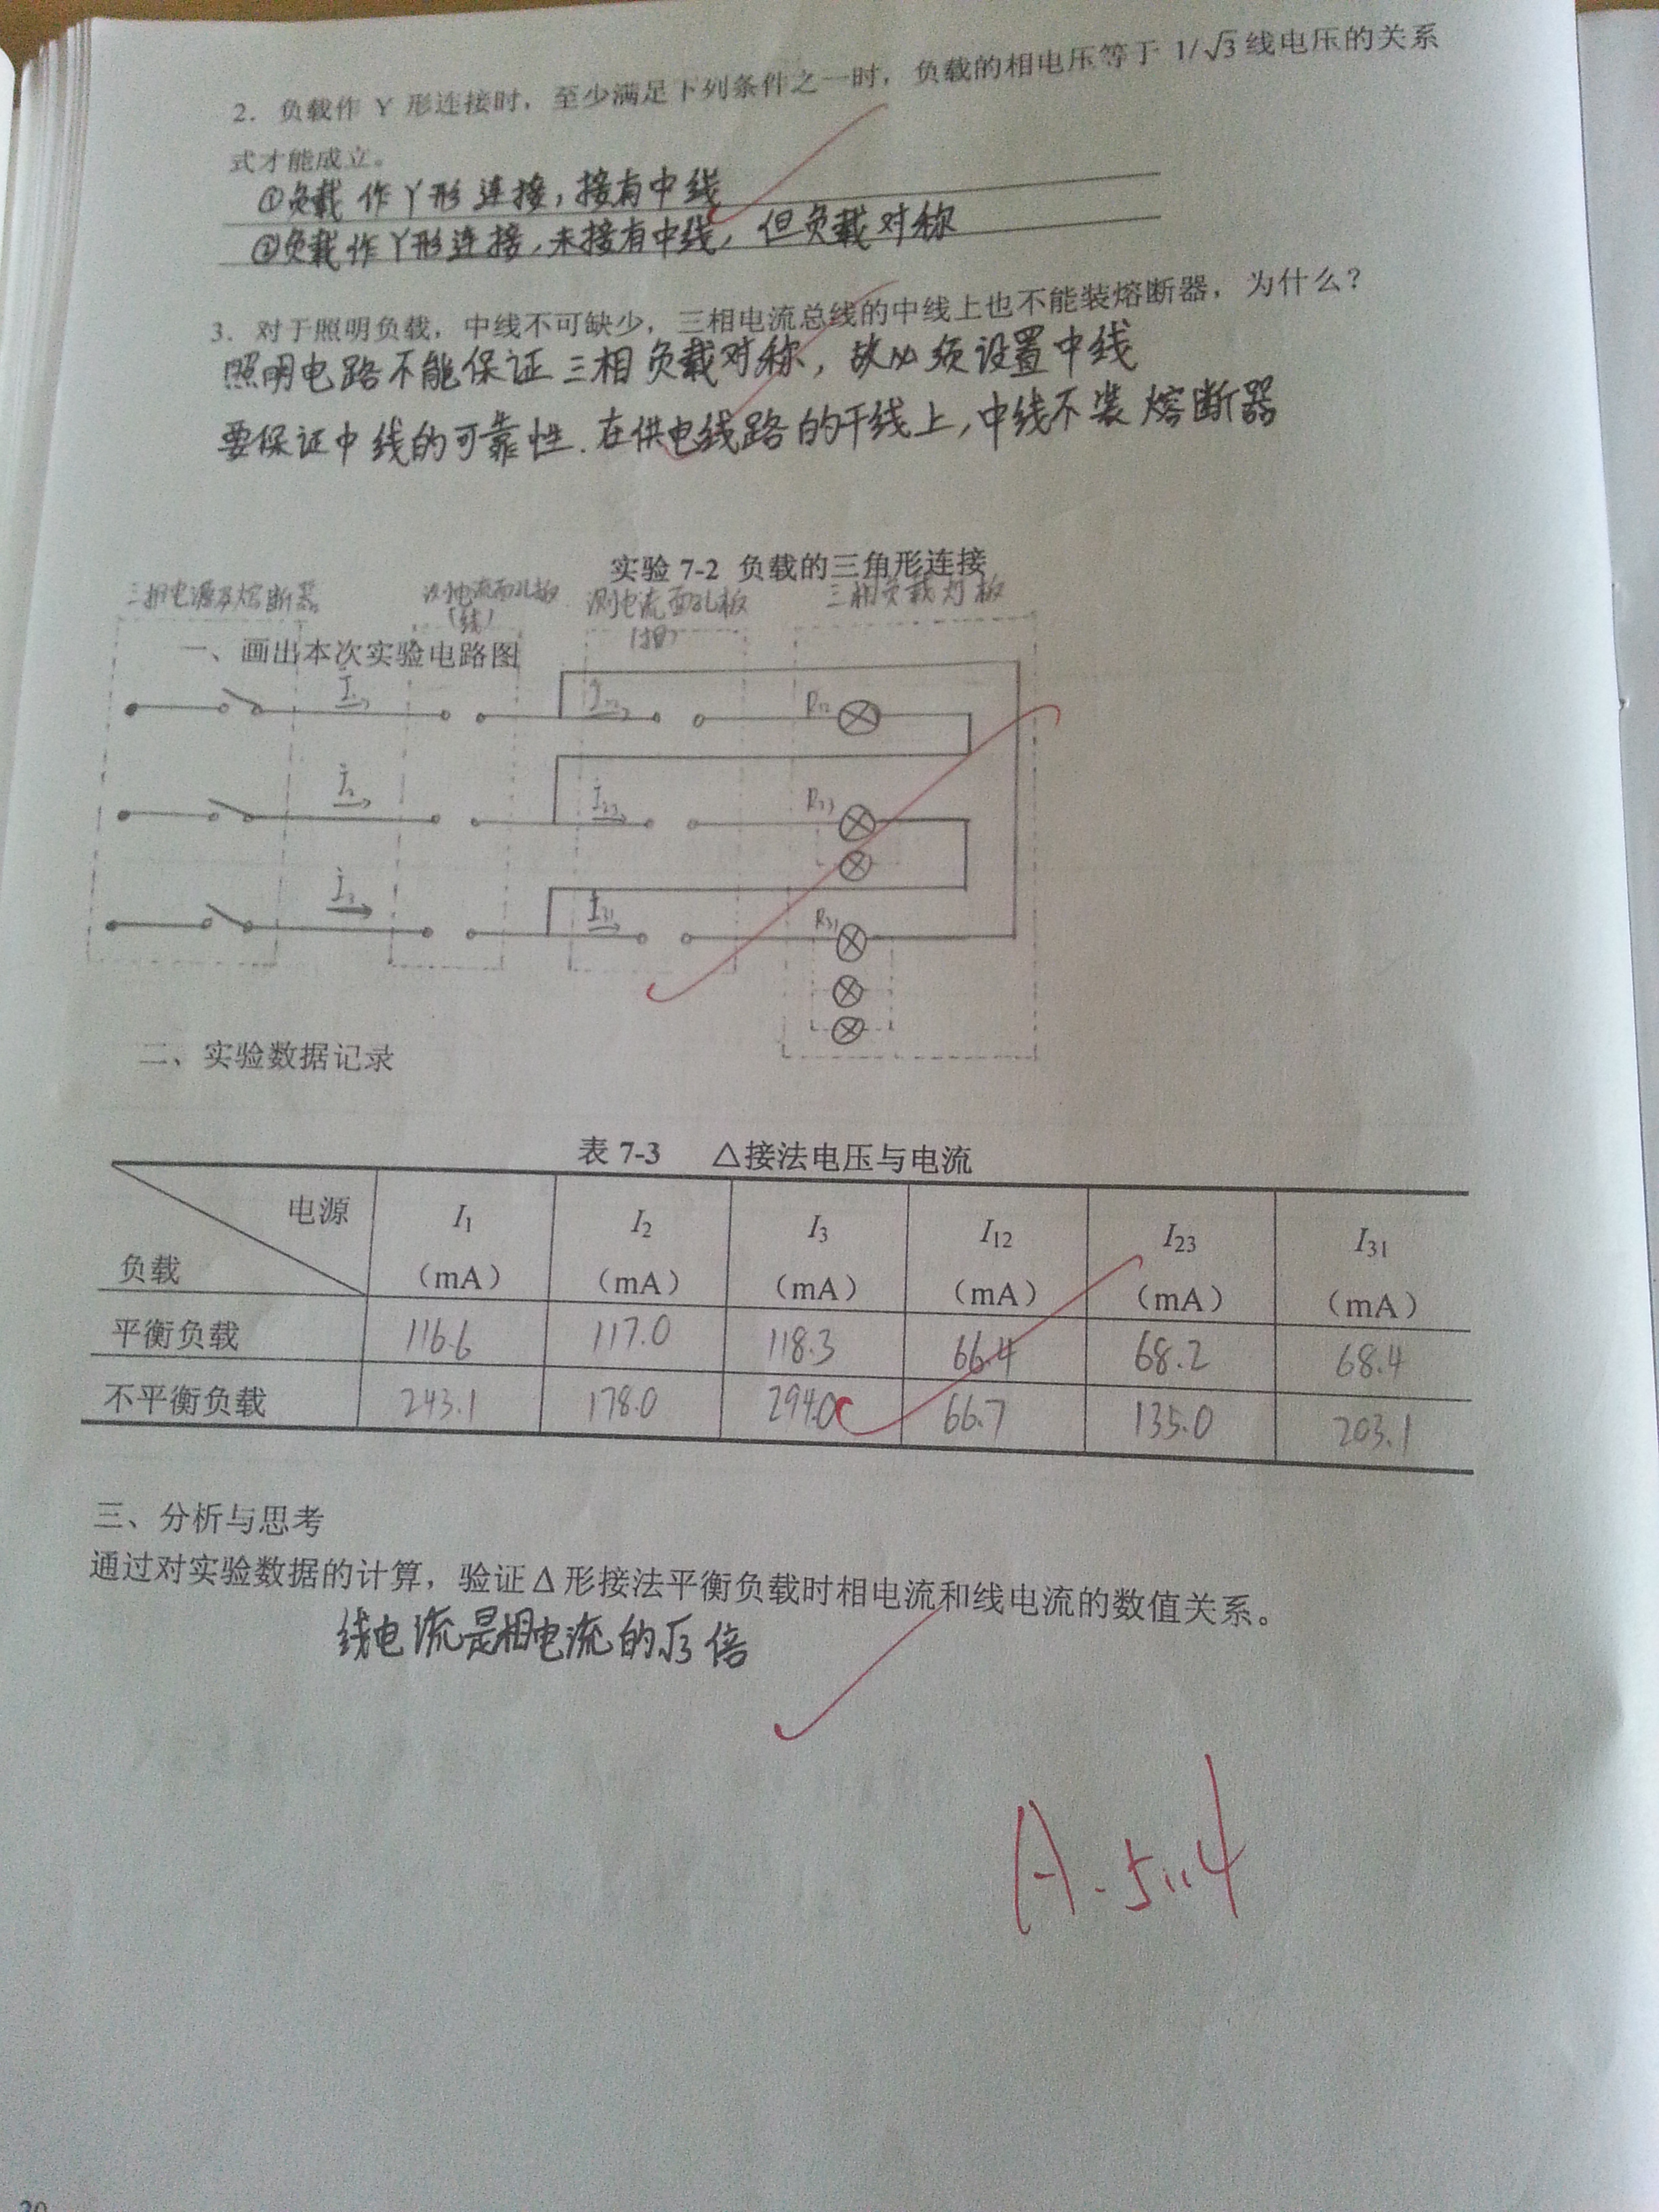 2. 负载作 Y 形连接时，至少满足下列条件之一时，负载的相电压等于 1/√3 线电压的关系
式才能成立。
①负载作Y形连接，接有中线
②负载作Y形连接，未接有中线，但负载对称
3. 对于照明负载，中线不可缺少，三相电流总线的中线上也不能装熔断器，为什么？
照明电路不能保证三相负载对称，故必须设置中线
要保证中线的可靠性.在供电线路的干线上，中线不装熔断器
实验 7-2 负载的三角形连接
三相电源及熔断器 测电流面孔板 测电流面孔板 三相负载灯板
(线) (相)
一、画出本次实验电路图
İ₁ İ₁₂ R₁₂
İ₂ İ₂₃ R₂₃
İ₃ İ₃₁ R₃₁
二、实验数据记录
表 7-3 △接法电压与电流
电源 I₁ I₂ I₃ I₁₂ I₂₃ I₃₁
负载 （mA） （mA） （mA） （mA） （mA） （mA）
平衡负载 116.6 117.0 118.3 66.4 68.2 68.4
不平衡负载 243.1 178.0 294.0 66.7 135.0 203.1
三、分析与思考
通过对实验数据的计算，验证Δ形接法平衡负载时相电流和线电流的数值关系。
线电流是相电流的√3倍
A. 5.14